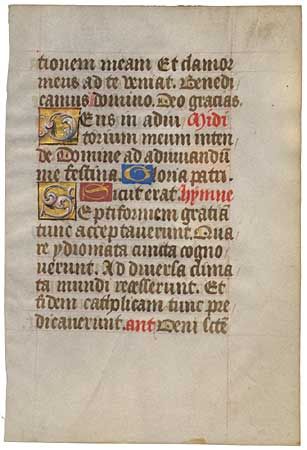 tionem meam Et clamor
meus ad te veniat. Benedi
camus domino. Deo gracias.
Deus in adiu Midi
torium meum inten
de Domine ad adiuuandum
me festina. Gloria patri.
Sicut erat. hymne
Septiformem gratiā
tunc acceptauerunt. Qua
re ydiomata cuncta cogno
uerunt. Ad diuersa clima
ta mundi recesserunt. Et
fidem catholicam tunc pre
dicauerunt. ant Veni